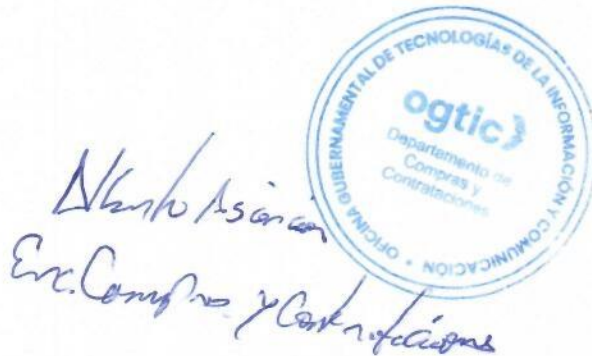 OFICINA GUBERNAMENTAL DE TECNOLOGÍAS DE LA INFORMACIÓN Y COMUNICACIÓN
ogtic
Departamento de
Compras y
Contrataciones
Enc. Compras y Contrataciones